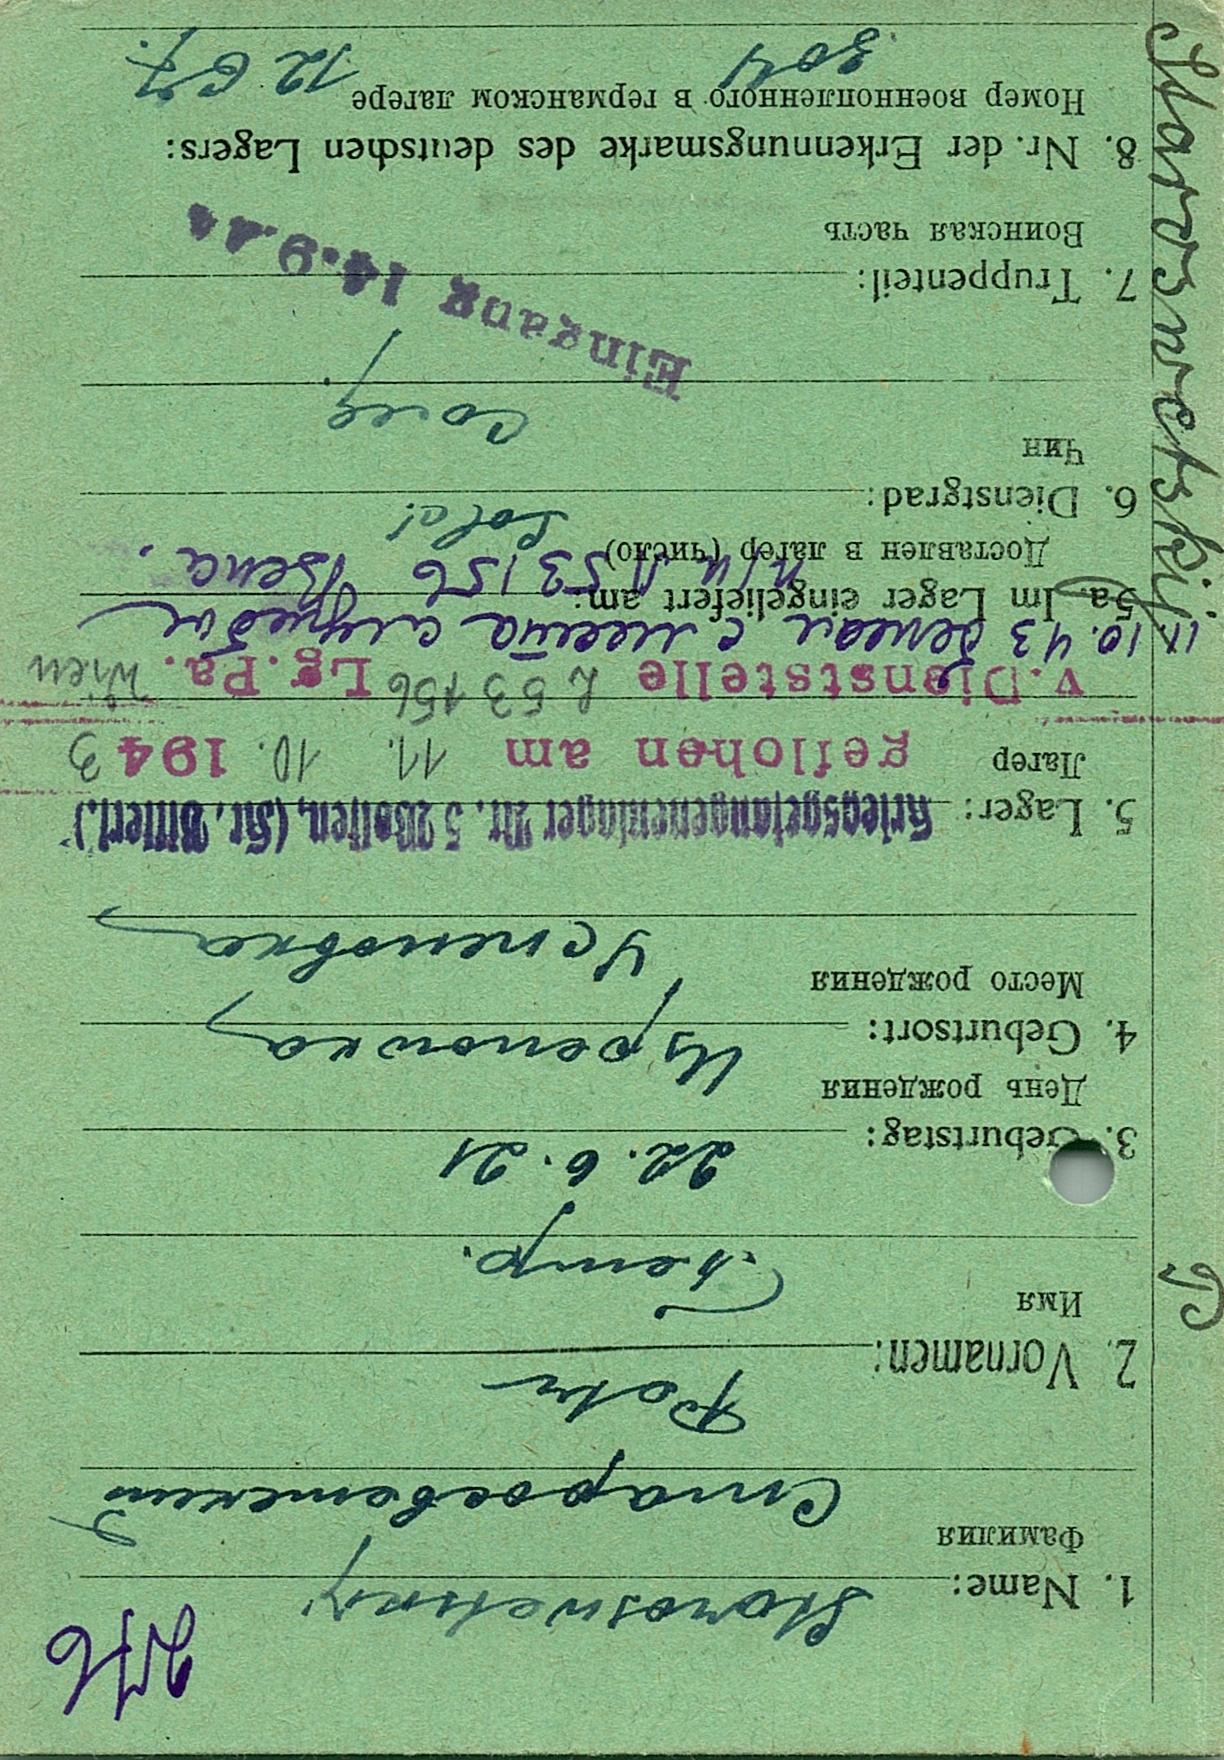 1. Name: Staroswetsky
Фамилия Старосветский
Petr
2. Vornamen:
Имя Петр.
22.6.21
3. Geburtstag:
День рождения
4. Geburtsort:
Место рождения Успеновка
Kriegsgefangenenlager Nr. 5 Wolfen, (Kr. Bitterf.)
5. Lager:
Лагер geflohen am 11. 10. 1943
v. Dienststelle L 53156 Lg. Pa. Wien
11.10.43 бежал с места службы
5a. Im Lager eingeliefert am:
п/п Л 53156 Вена.
Доставлен в лагер (число)
Sold!
6. Dienstgrad:
Чин
Солд.
Eingang 14.9.44
7. Truppenteil:
Воинская часть
8. Nr. der Erkennungsmarke des deutschen Lagers:
Номер военнопленного в германском лагере
304 1267.
Staroswetskij P